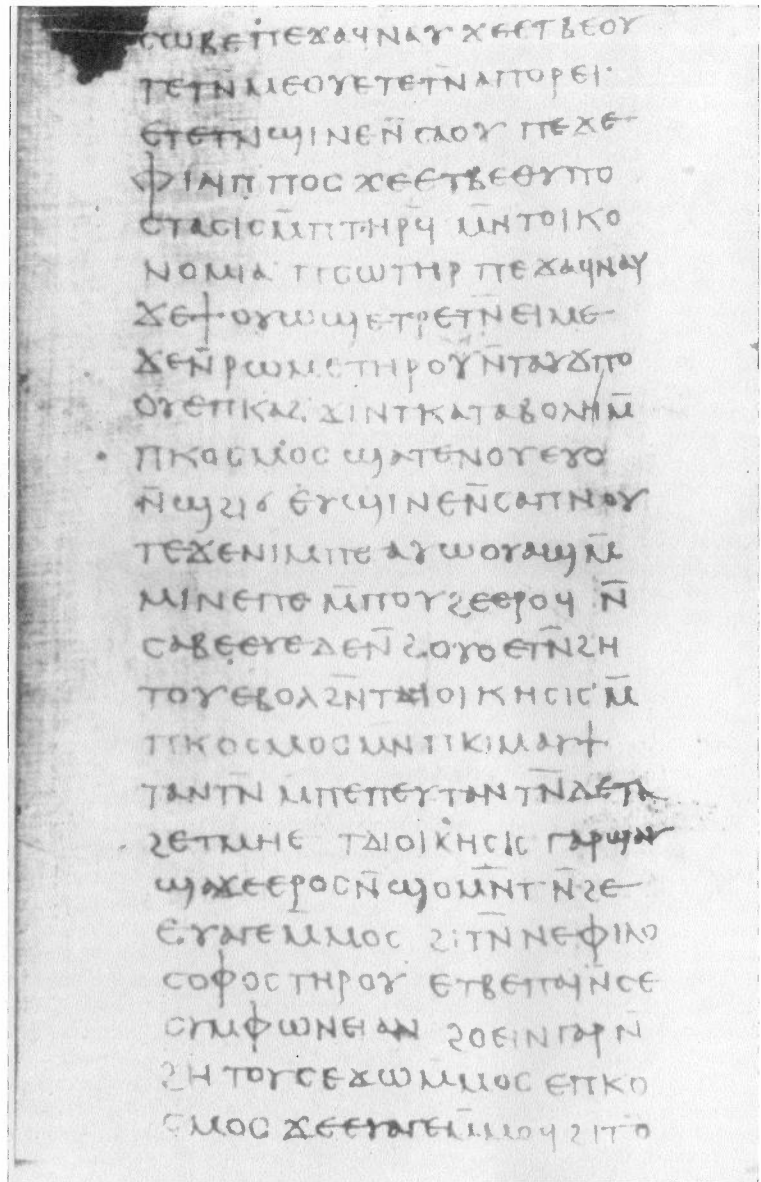 ⲥⲱⲃⲉ ⲡⲉϫⲁϥ ⲛⲁⲩ ϫⲉ ⲉⲧⲃⲉ ⲟⲩ
ⲧⲉⲧⲛ̄ⲙⲉⲟⲩⲉ ⲧⲉⲧⲛ̄ⲁⲡⲟⲣⲉⲓ
ⲉⲧⲉⲧⲛ̄ϣⲓⲛⲉ ⲛ̄ⲥⲁ ⲟⲩ ⲡⲉϫⲉ
ⲫⲓⲗⲓⲡⲡⲟⲥ ϫⲉ ⲉⲧⲃⲉ ⲑⲩⲡⲟ
ⲥⲧⲁⲥⲓⲥ ⲙ̄ⲡⲧⲏⲣϥ ⲙⲛ̄ ⲧⲟⲓⲕⲟ
ⲛⲟⲙⲓⲁ ⲡⲥⲱⲧⲏⲣ ⲡⲉϫⲁϥ ⲛⲁⲩ
ϫⲉ ϯⲟⲩⲱϣ ⲉⲧⲣⲉⲧⲛ̄ⲉⲓⲙⲉ
ϫⲉ ⲛ̄ⲣⲱⲙⲉ ⲧⲏⲣⲟⲩ ⲛ̄ⲧⲁⲩϫⲡⲟ
ⲟⲩ ⲉⲡⲕⲁϩ ϫⲓⲛ ⲧⲕⲁⲧⲁⲃⲟⲗⲏ ⲙ̄
ⲡⲕⲟⲥⲙⲟⲥ ϣⲁ ⲧⲉⲛⲟⲩ ⲉⲩⲟ
ⲛ̄ϣϩⲓϭ ⲉⲩϣⲓⲛⲉ ⲛ̄ⲥⲁ ⲡⲛⲟⲩ
ⲧⲉ ϫⲉ ⲛⲓⲙ ⲡⲉ ⲁⲩⲱ ⲟⲩⲁϣ ⲙ̄
ⲙⲓⲛⲉ ⲡⲉ ⲙ̄ⲡⲟⲩϩⲉ ⲉⲣⲟϥ ⲛ̄
ⲥⲁⲃⲉⲉⲩⲉ ⲇⲉ ⲛ̄ϩⲟⲩⲟ ⲉⲧⲛ̄ϩⲏ
ⲧⲟⲩ ⲉⲃⲟⲗ ϩⲛ̄ ⲧⲇⲓⲟⲓⲕⲏⲥⲓⲥ ⲙ̄
ⲡⲕⲟⲥⲙⲟⲥ ⲙⲛ̄ ⲡⲕⲓⲙ ⲁⲩϯ
ⲧⲁⲛⲧⲛ̄ ⲙ̄ⲡⲉ ⲡⲉⲩⲧⲁⲛⲧⲛ̄ ⲇⲉ ⲧⲁ
ϩⲉ ⲧⲙⲏⲉ ⲧⲇⲓⲟⲓⲕⲏⲥⲓⲥ ⲅⲁⲣ ϣⲁⲩ
ϣⲁϫⲉ ⲉⲣⲟⲥ ⲛ̄ϣⲟⲙⲛ̄ⲧ ⲛ̄ϩⲉ
ⲉⲩⲁⲅⲉ ⲙ̄ⲙⲟⲥ ϩⲓⲧⲛ̄ ⲛⲉⲫⲓⲗⲟ
ⲥⲟⲫⲟⲥ ⲧⲏⲣⲟⲩ ⲉⲧⲃⲉ ⲡⲁⲓ̈ ⲛ̄ⲥⲉ
ⲥⲩⲙⲫⲱⲛⲉⲓ ⲁⲛ ϩⲟⲉⲓⲛ ⲅⲁⲣ ⲛ̄
ϩⲏⲧⲟⲩ ⲥⲉϫⲱ ⲙ̄ⲙⲟⲥ ⲉⲡⲕⲟ
ⲥⲙⲟⲥ ϫⲉ ⲉⲩⲁⲅⲉ ⲙ̄ⲙⲟϥ ϩⲓⲧⲟ